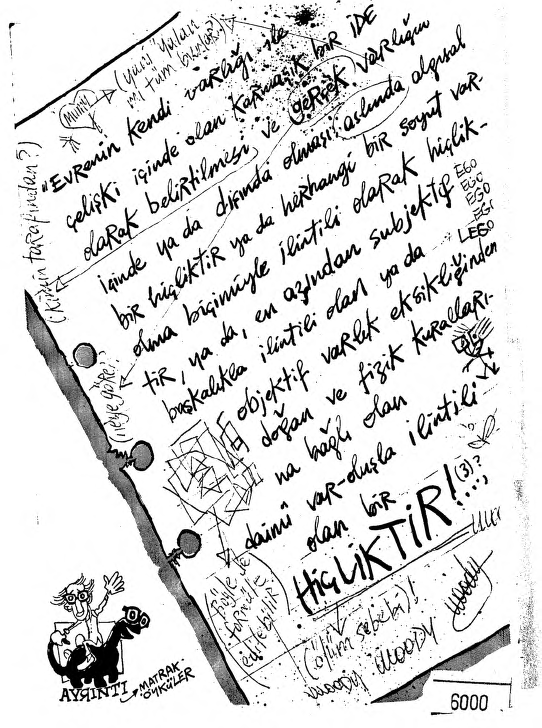 (yani yılan
mı tüm bunlar?)
"Evrenin kendi varlığı ile
çelişki içinde olan karmaşık bir İDE
olarak belirtilmesi ve gerçek varlığın
içinde ya da dışında olması, aslında algısal
bir hiçliktir ya da herhangi bir soyut var-
olma biçimiyle ilintili olarak hiçlik-
tir, ya da, en azından subjektif
başkalıkla ilintili olan ya da
objektif varlık eksikliğinden
doğan ve fizik kuralları-
na bağlı olan
daimi var-oluşla ilintili
olan bir
HİÇLİKTİR!(3)?
....,
(Kimin tarafından?)
(neye göre?)
EGO
EGO
EGO
EGO
LEGO
Böyle de
formüle
edilebilir!
(ölüm sebebi)!
WOODY WOODY
AYRINTI
MATRAK
ÖYKÜLER
6000